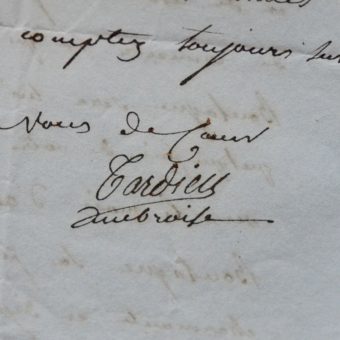 comptez toujours sur
Vous de Cœur
Tardieu
Ambroise